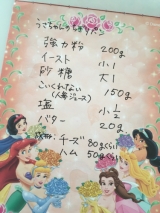 うさちゃんのちぎりパン
強力粉 200g
イースト 小1
砂糖 大1
こいくれない
(人参ジュース) 150g
塩 小½
バター 20g
チーズ 80gくらい
ハム 50gくらい